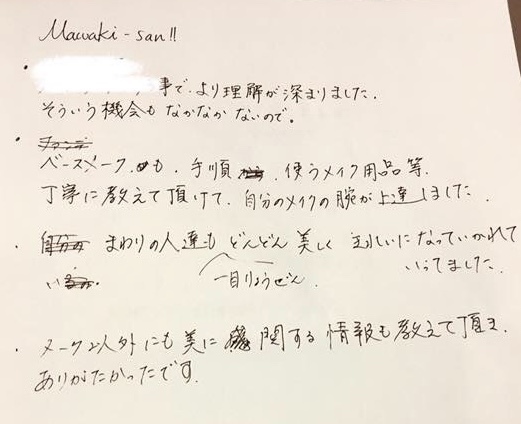 Mawaki-san!!
・
事で、より理解が深まりました。
そういう機会もなかなかないので。
・
ベースメーク も、手順、使うメイク用品等、
丁寧に教えて頂けて、自分のメイクの腕が上達しました
・ まわりの人達も どんどん 美しく きれいになっていかれて
い いってました。
一目りょうぜん。
・ メーク以外にも美に関する情報も教えて頂き
ありがたかったです。